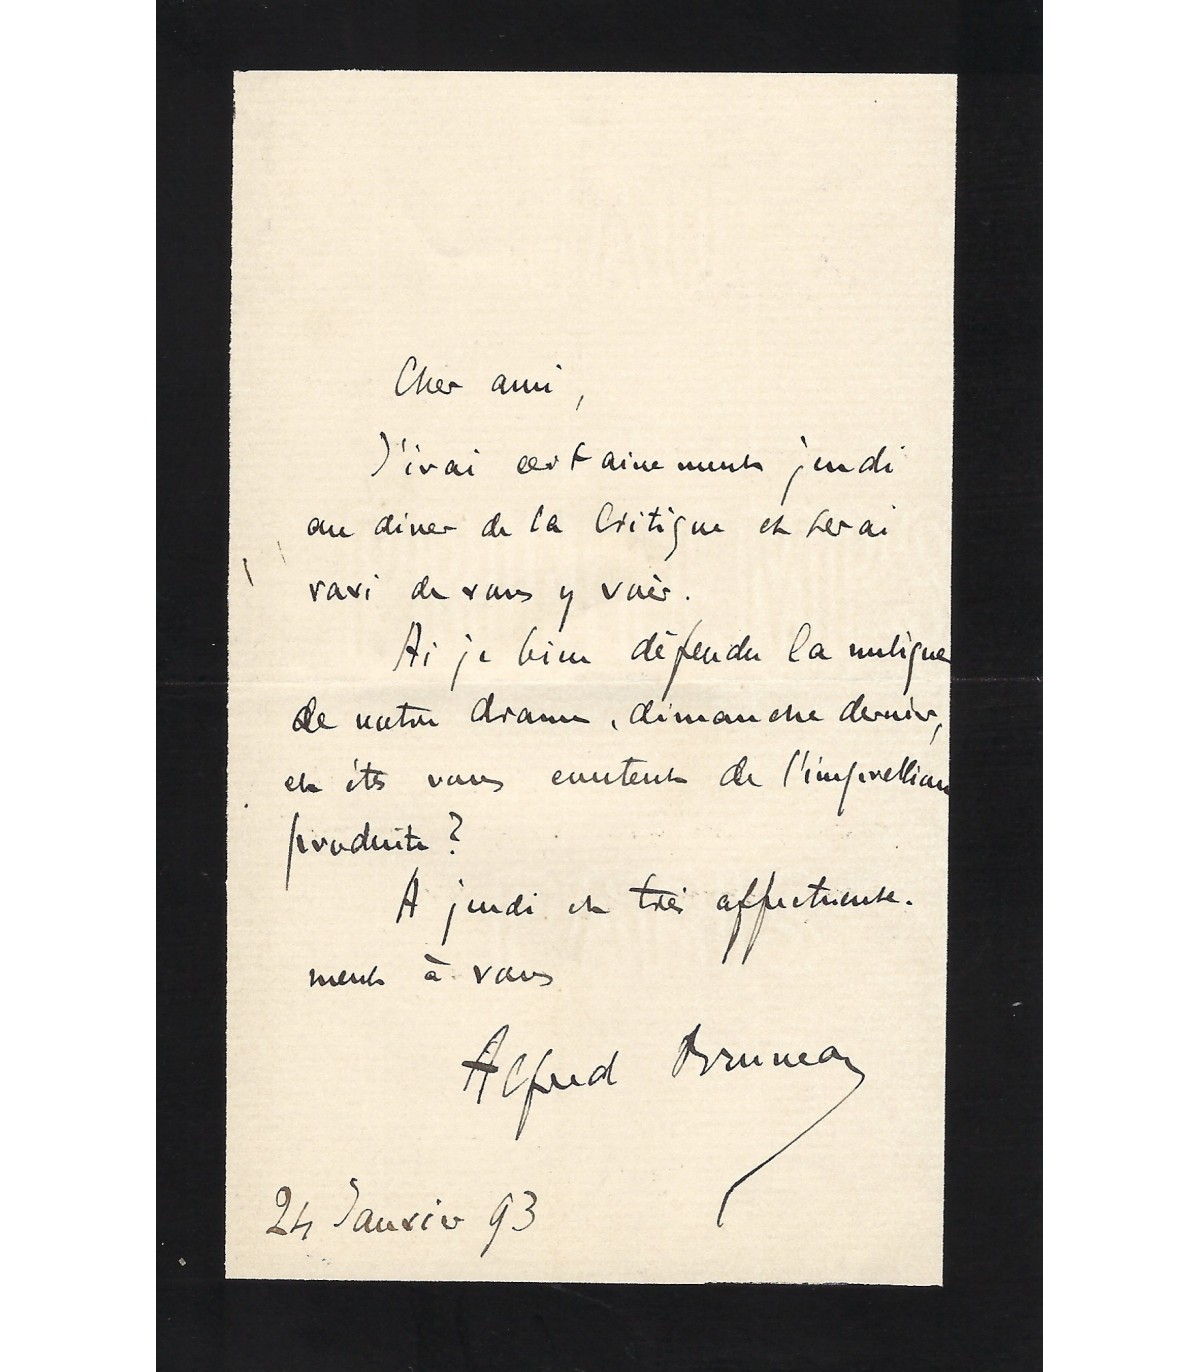 Cher ami,
J'irai certainement jeudi
au diner de la Critique et serai
ravi de vous y voir.
Ai je bien défendu la musique
de votre drame, dimanche dernier,
et êtes vous content de l'impression
produite ?
A jeudi et très affectueuse-
ment à vous
Alfred Bruneau
24 Janvier 93